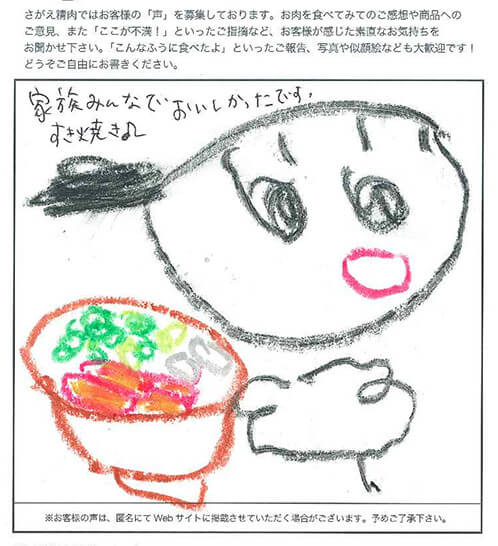 さがえ精肉ではお客様の「声」を募集しております。お肉を食べてみてのご感想や商品への
ご意見、また「ここが不満！」といったご指摘など、お客様が感じた素直なお気持ちを
お聞かせ下さい。「こんなふうに食べたよ」といったご報告、写真や似顔絵なども大歓迎です！
どうぞご自由にお書きください。
家族みんなでおいしかったです。
すき焼き♪
※お客様の声は、匿名にてWebサイトに掲載させていただく場合がございます。予めご了承下さい。